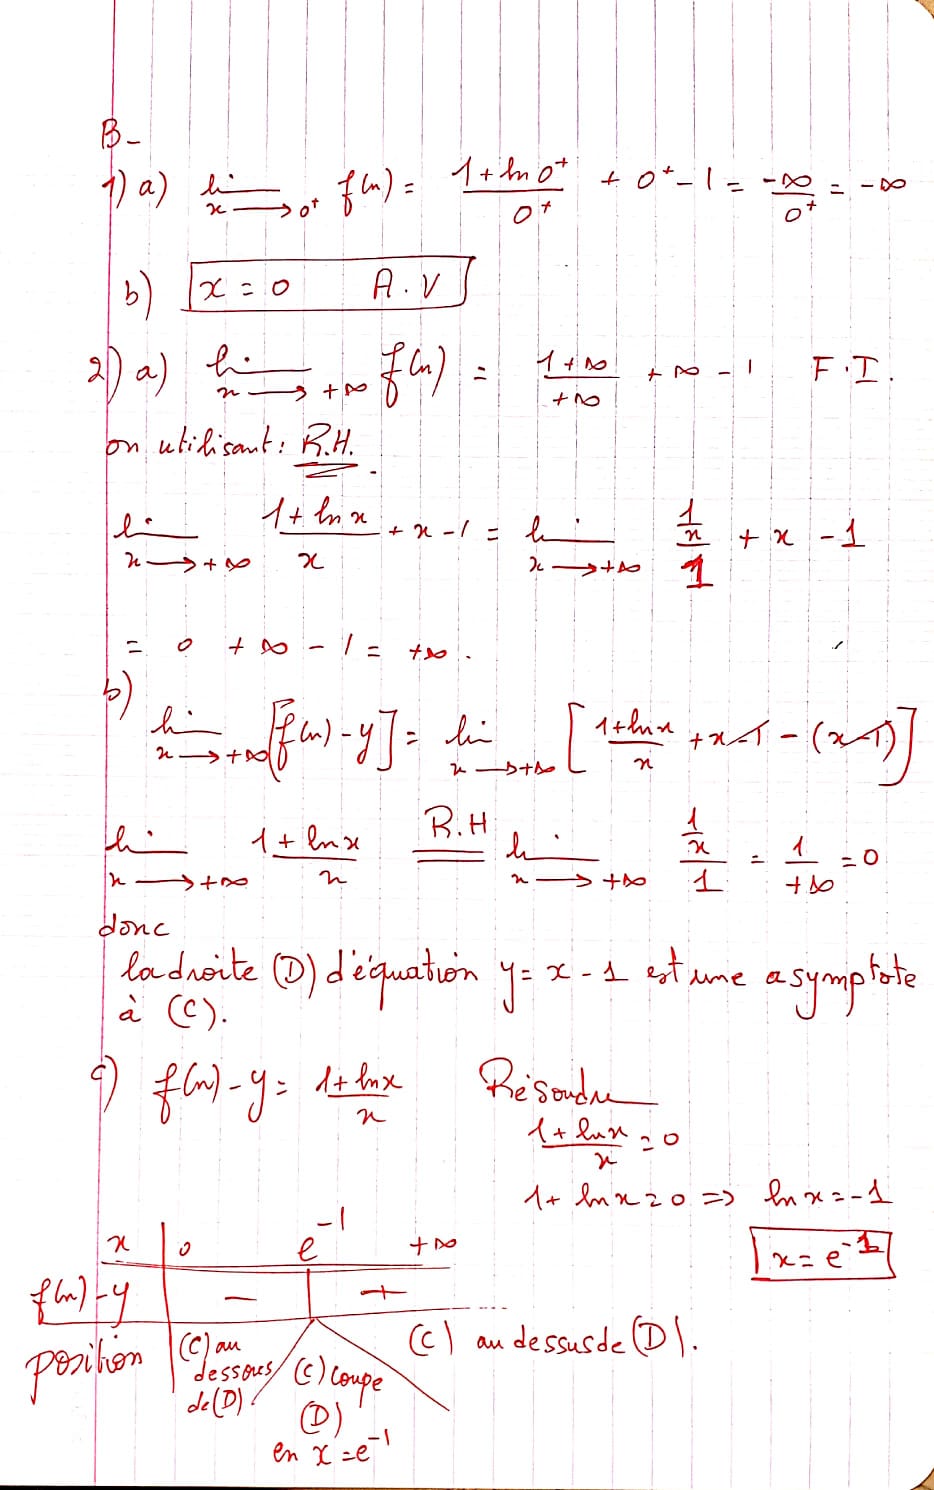 B-
1) a) lim x→0⁺ f(x) = (1+ln 0⁺)/0⁺ + 0⁺ - 1 = -∞/0⁺ = -∞
b) x = 0 A.V
2) a) lim x→+∞ f(x) = (1+∞)/+∞ + ∞ - 1 F.I.
on utilisant : R.H.
lim x→+∞ (1+ln x)/x + x - 1 = lim x→+∞ (1/x)/1 + x - 1
= 0 + ∞ - 1 = +∞.
b)
lim x→+∞ [f(x) - y] = lim x→+∞ [(1+ln x)/x + x - 1 - (x-1)]
lim x→+∞ (1+ln x)/x R.H = lim x→+∞ (1/x)/1 = 1/+∞ = 0
donc
la droite (D) d'équation y = x - 1 est une asymptote
à (C).
c) f(x) - y = (1+ln x)/x Résoudre
(1+ln x)/x = 0
1+ ln x = 0 => ln x = -1
x = e⁻¹
x 0 e⁻¹ +∞
f(x) - y - +
position (C) au dessous de (D) (C) coupe (D) en x = e⁻¹ (C) au dessus de (D).